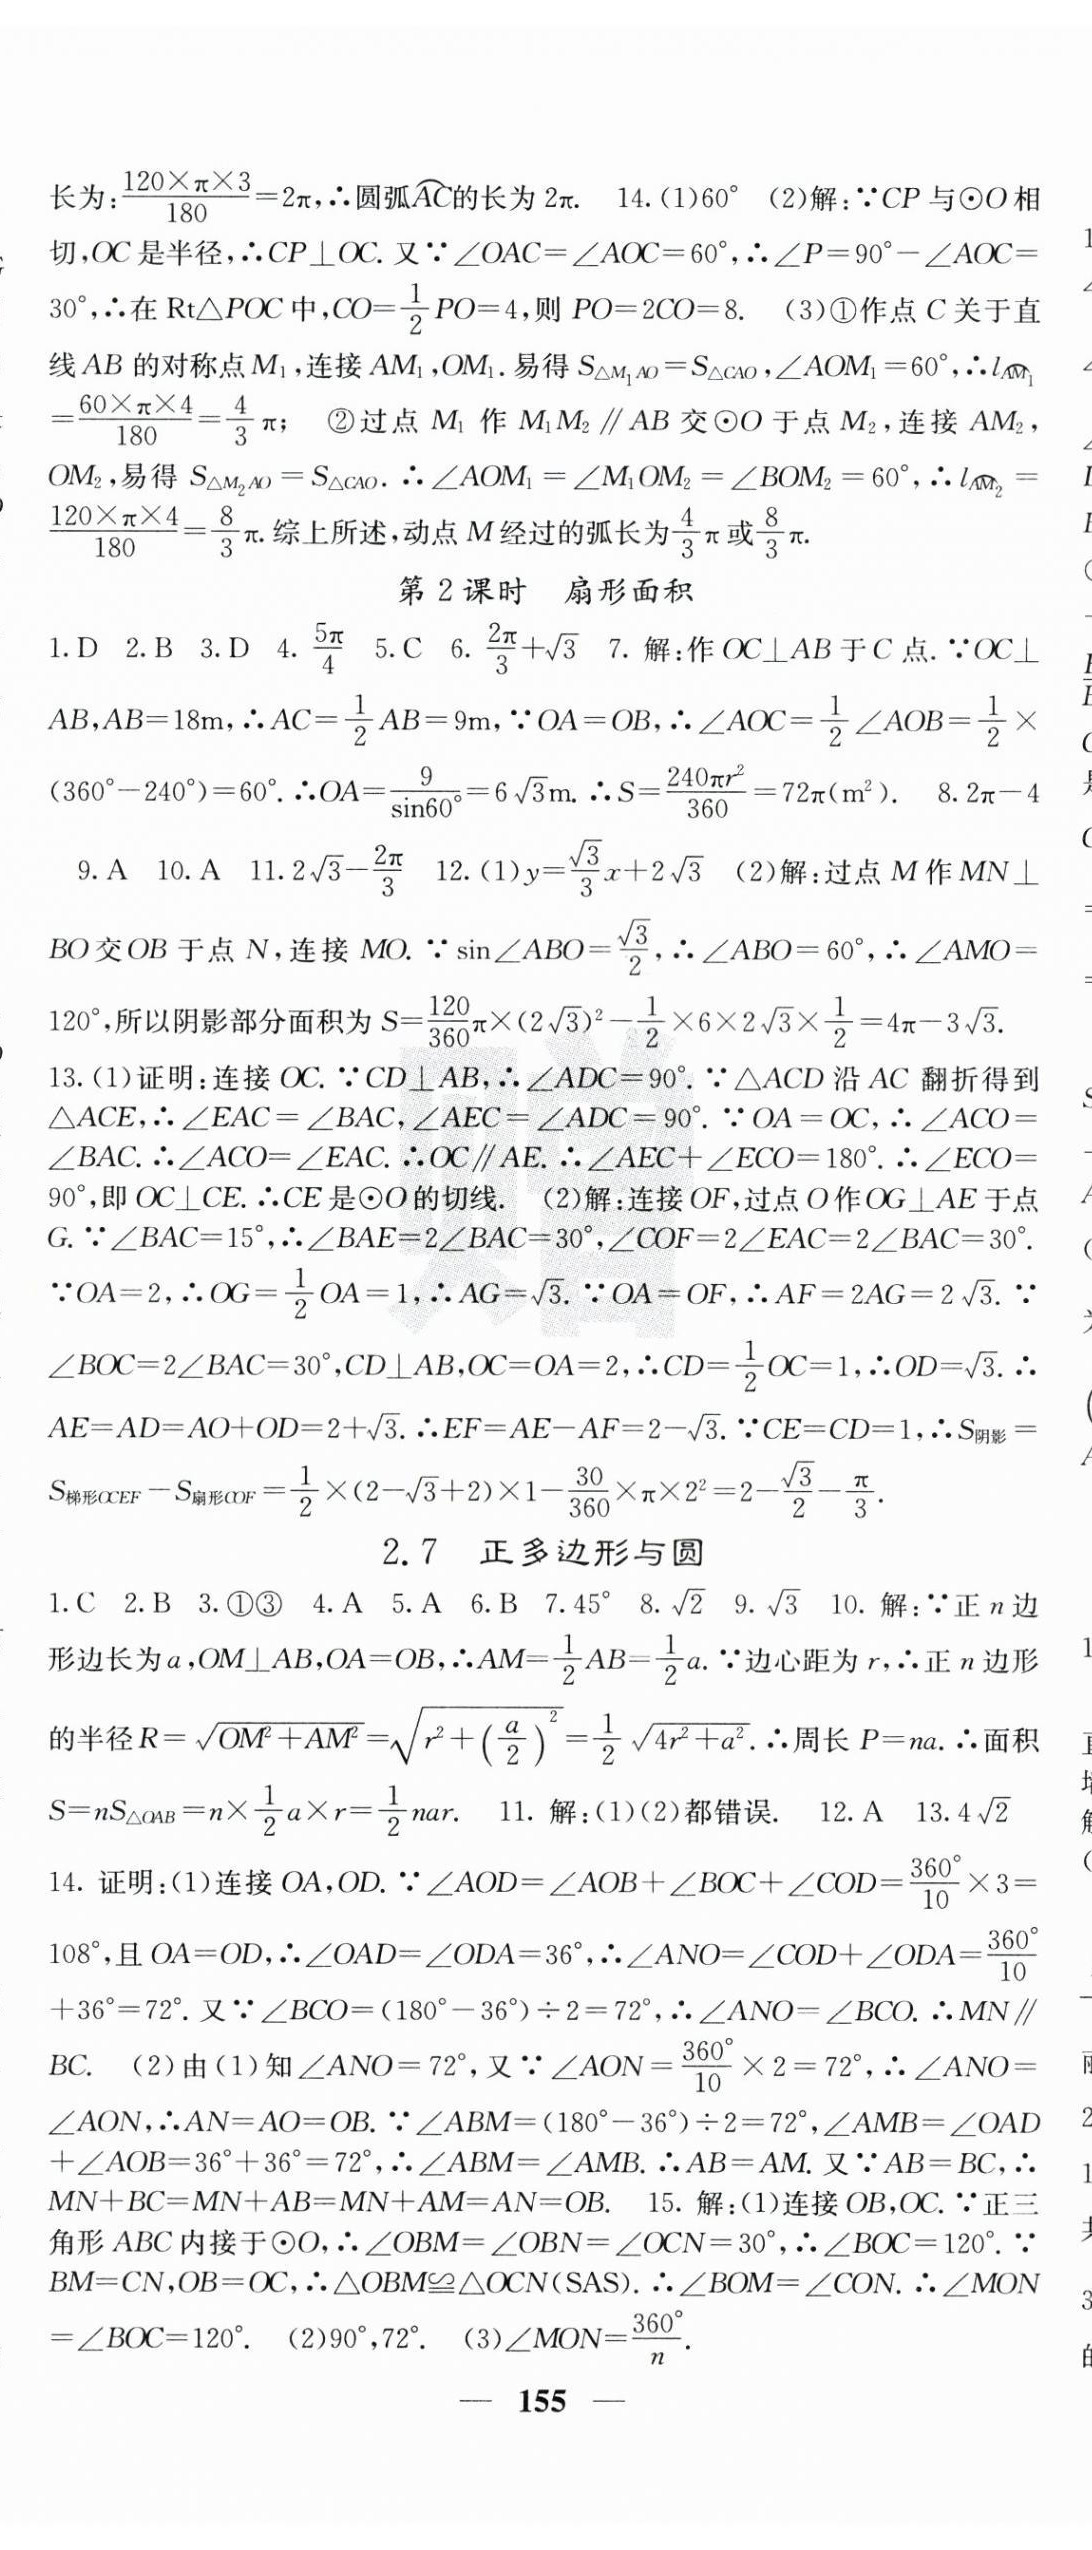 长为:120×π×3/180=2π,∴圆弧AC的长为 2π. 14.(1)60° (2)解:∵CP 与⊙O 相
切,OC 是半径,∴CP⊥OC. 又∵∠OAC=∠AOC=60°,∴∠P=90°-∠AOC=
30°,∴在 Rt△POC 中,CO=1/2 PO=4,则 PO=2CO=8. (3)①作点 C 关于直
线 AB 的对称点 M₁,连接 AM₁,OM₁. 易得 S△M₁AO=S△CAO,∠AOM₁=60°,∴lAM₁
=60×π×4/180=4/3 π; ②过点 M₁ 作 M₁M₂∥AB 交⊙O 于点 M₂,连接 AM₂,
OM₂,易得 S△M₂AO=S△CAO. ∴∠AOM₁=∠M₁OM₂=∠BOM₂=60°,∴lAM₂=
120×π×4/180=8/3 π. 综上所述,动点 M 经过的弧长为 4/3 π 或 8/3 π.
第 2 课时 扇形面积
1. D 2. B 3. D 4. 5π/4 5. C 6. 2π/3+√3 7. 解:作 OC⊥AB 于 C 点. ∵OC⊥
AB,AB=18m,∴AC=1/2 AB=9m,∵OA=OB,∴∠AOC=1/2∠AOB=1/2×
(360°-240°)=60°. ∴OA=9/sin60°=6√3m. ∴S=240πr²/360=72π(m²). 8. 2π-4
9. A 10. A 11. 2√3-2π/3 12. (1)y=√3/3 x+2√3 (2)解:过点 M 作 MN⊥
BO 交 OB 于点 N,连接 MO. ∵sin∠ABO=√3/2,∴∠ABO=60°,∴∠AMO=
120°,所以阴影部分面积为 S=120/360 π×(2√3)²-1/2×6×2√3×1/2=4π-3√3.
13. (1)证明:连接 OC. ∵CD⊥AB,∴∠ADC=90°. ∵△ACD 沿 AC 翻折得到
△ACE,∴∠EAC=∠BAC,∠AEC=∠ADC=90°. ∵OA=OC,∴∠ACO=
∠BAC. ∴∠ACO=∠EAC. ∴OC∥AE. ∴∠AEC+∠ECO=180°. ∴∠ECO=
90°,即 OC⊥CE. ∴CE 是⊙O 的切线. (2)解:连接 OF,过点 O 作 OG⊥AE 于点
G. ∵∠BAC=15°,∴∠BAE=2∠BAC=30°,∠COF=2∠EAC=2∠BAC=30°.
∵OA=2,∴OG=1/2 OA=1,∴AG=√3. ∵OA=OF,∴AF=2AG=2√3. ∵
∠BOC=2∠BAC=30°,CD⊥AB,OC=OA=2,∴CD=1/2 OC=1,∴OD=√3. ∴
AE=AD=AO+OD=2+√3. ∴EF=AE-AF=2-√3. ∵CE=CD=1,∴S阴影=
S梯形OCEF-S扇形COF=1/2×(2-√3+2)×1-30/360×π×2²=2-√3/2-π/3.
2.7 正多边形与圆
1. C 2. B 3. ①③ 4. A 5. A 6. B 7. 45° 8. √2 9. √3 10. 解:∵正 n 边
形边长为 a,OM⊥AB,OA=OB,∴AM=1/2 AB=1/2 a. ∵边心距为 r,∴正 n 边形
的半径 R=√(OM²+AM²)=√(r²+(a/2)²)=1/2 √(4r²+a²). ∴周长 P=na. ∴面积
S=nS△OAB=n×1/2 a×r=1/2 nar. 11. 解:(1)(2)都错误. 12. A 13. 4√2
14. 证明:(1)连接 OA,OD. ∵∠AOD=∠AOB+∠BOC+∠COD=360°/10×3=
108°,且 OA=OD,∴∠OAD=∠ODA=36°,∴∠ANO=∠COD+∠ODA=360°/10
+36°=72°. 又∵∠BCO=(180°-36°)÷2=72°,∴∠ANO=∠BCO. ∴MN∥
BC. (2)由(1)知∠ANO=72°,又∵∠AON=360°/10×2=72°,∴∠ANO=
∠AON,∴AN=AO=OB. ∵∠ABM=(180°-36°)÷2=72°,∠AMB=∠OAD
+∠AOB=36°+36°=72°,∴∠ABM=∠AMB. ∴AB=AM. 又∵AB=BC,∴
MN+BC=MN+AB=MN+AM=AN=OB. 15. 解:(1)连接 OB,OC. ∵正三
角形 ABC 内接于⊙O,∴∠OBM=∠OBN=∠OCN=30°,∴∠BOC=120°. ∵
BM=CN,OB=OC,∴△OBM≌△OCN(SAS). ∴∠BOM=∠CON. ∴∠MON
=∠BOC=120°. (2)90°,72°. (3)∠MON=360°/n.
— 155 —